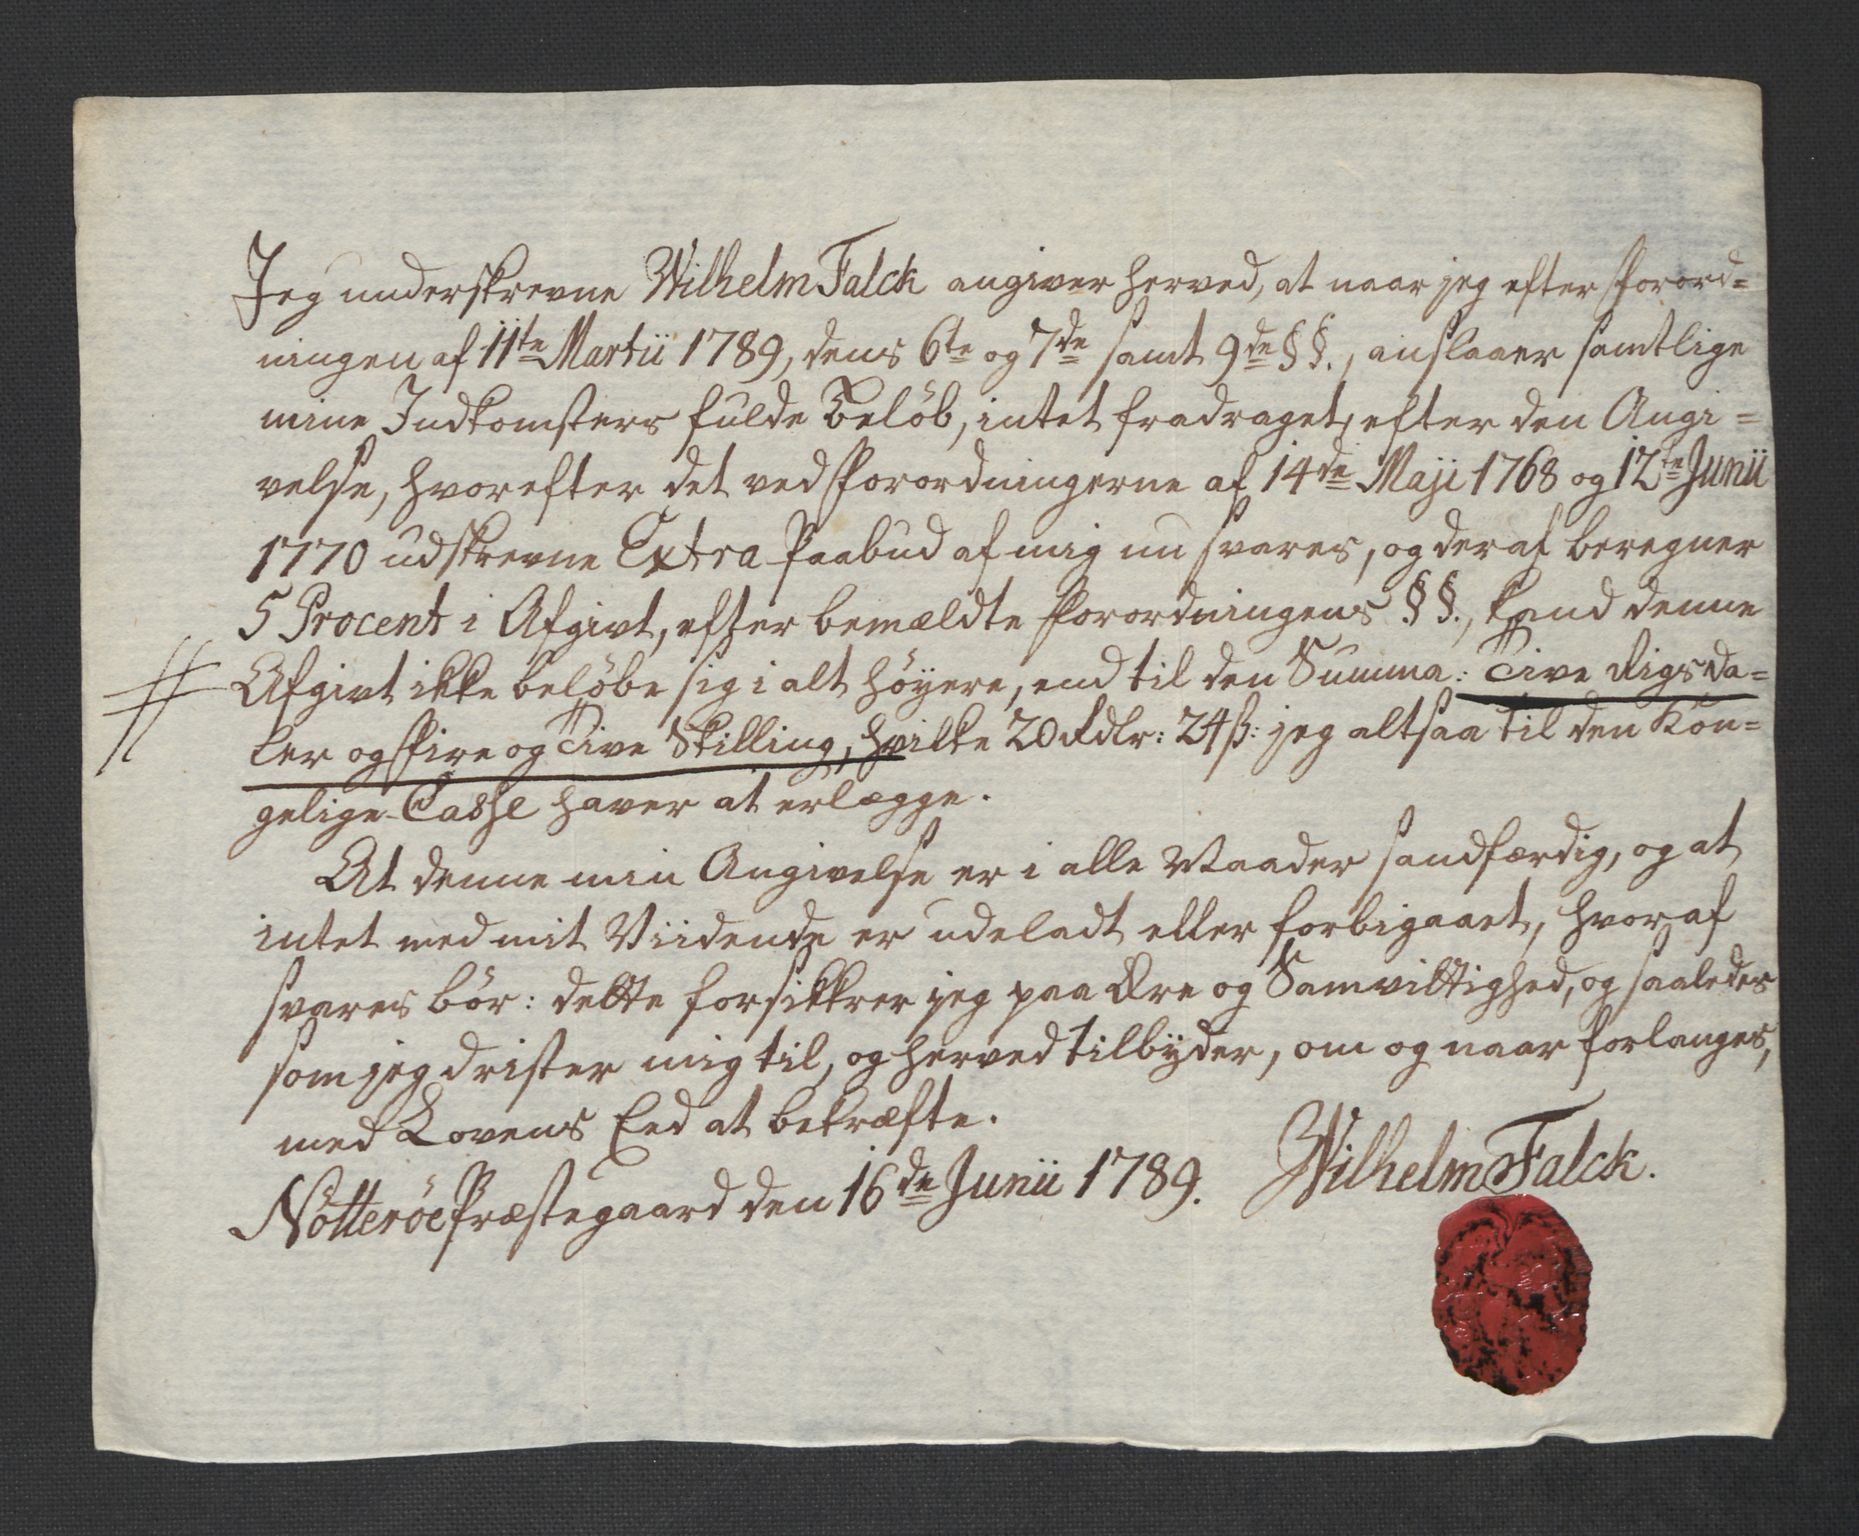 Jeg underskrevne Wilhelm Falck angiver herved, at naar jeg efter Forord=
ningen af 11te Martii 1789, dens 6te og 7de samt 9de §§., anslaaer samtlige
mine Indkomsters fulde Beløb, intet fradraget, efter den Angi=
velse, hvorefter det ved Forordningerne af 14de Maji 1768 og 12te Junii
1770 udskrevne Extra Paabud af mig nu svares, og deraf beregner
5 Procent i Afgivt, efter bemældte Forordningens §§., kand denne
Afgivt ikke beløbe sig i alt høyere, end til den Summa: Tive Rigsda=
ler og Fire og Tive Skilling, hvilke 20 Rdlr: 24 ß: jeg altsaa til den Kon=
gelige Casse haver at erlægge.
At denne min Angivelse er i alle Maader sandfærdig, og at
intet med mit Viidende er udeladt eller forbigaaet, hvoraf
svares bör: dette forsikkrer jeg paa Ære og Samvittighed, og saaledes
som jeg drister mig til, og herved tilbÿder, om og naar forlanges,
med Lovens Eed at bekræfte.
Nötteröe Præstegaard den 16de Junii 1789. Wilhelm Falck.